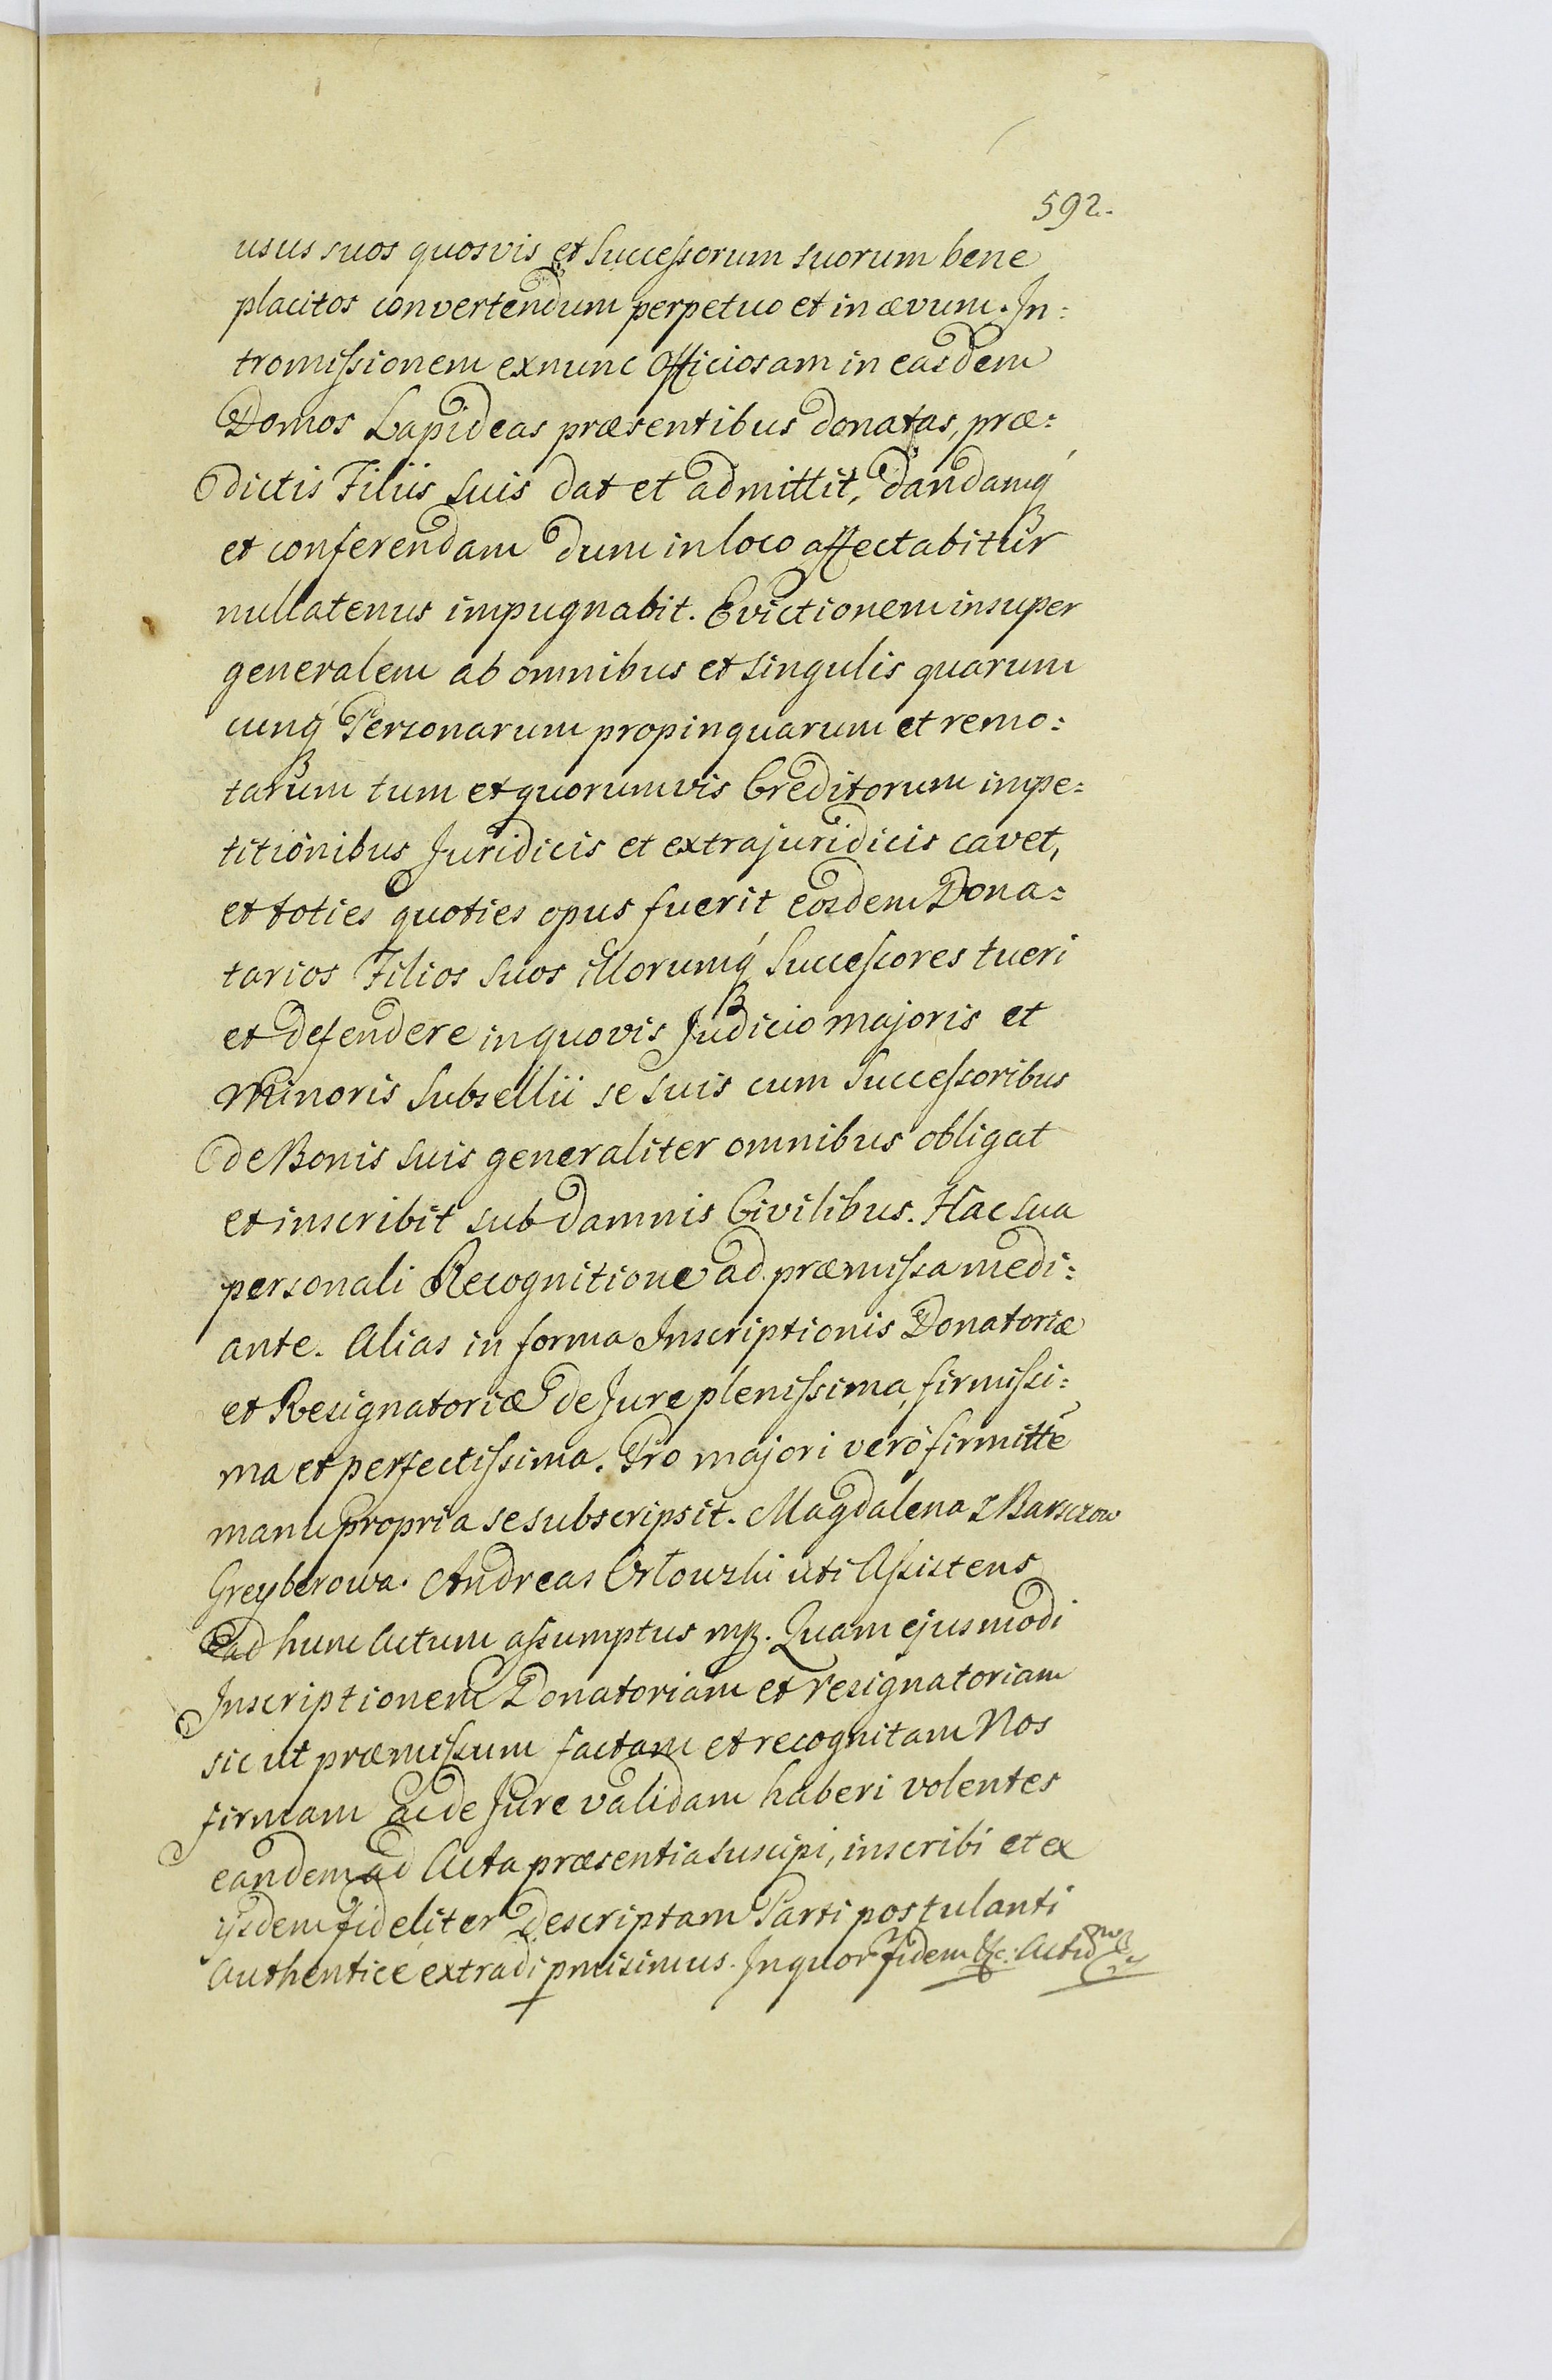 592.
usus suos quosvis et Successorum suorum bene
placitos convertendum perpetuo et in ævum. In:
tromissionem exnunc Officiosam in easdem
Domos Lapideas præsentibus donatas, præ:
dictis Filiis suis dat et admittit, dandamq́
et conferendam dum in loco affectabitur
nullatenus impugnabit. Evictionem insuper
generalem ab omnibus et singulis quarum
cunq́ Personarum propinquarum et remo:
tarum tum et quorumvis Creditorum impe:
titionibus Juridicis et extrajuridicis cavet,
et toties quoties opus fuerit eosdem Dona:
tarios Filios suos illorumq́ Successores tueri
et defendere in quovis Judicio majoris et
Minoris Subsellii se suis cum Successoribus
de Bonis suis generaliter omnibus obligat
et inscribit sub damnis Civilibus. Hac sua
personali Recognitione ad præmissa medi:
ante. Alias in forma Inscriptionis Donatoriæ
et Resignatoriæ de Jure plenissima, firmissi:
ma et perfectissima. Pro majori verò firmitte
manu propria se subscripsit. Magdalena z Barsczow
Greyberowa. Andreas Orłowski uti Assistens
ad hunc Actum assumptus mp. Quam ejusmodi
Inscriptionem Donatoriam et resignatoriam
sic ut præmissum factam et recognitam Nos
firmam ac de Jure validam haberi volentes
eandem ad Acta præsentia suscipi, inscribi et ex
ijsdem fideliter descriptam Parti postulanti
Authenticè extradi pmisimus. In quor fidem &c. Actũ